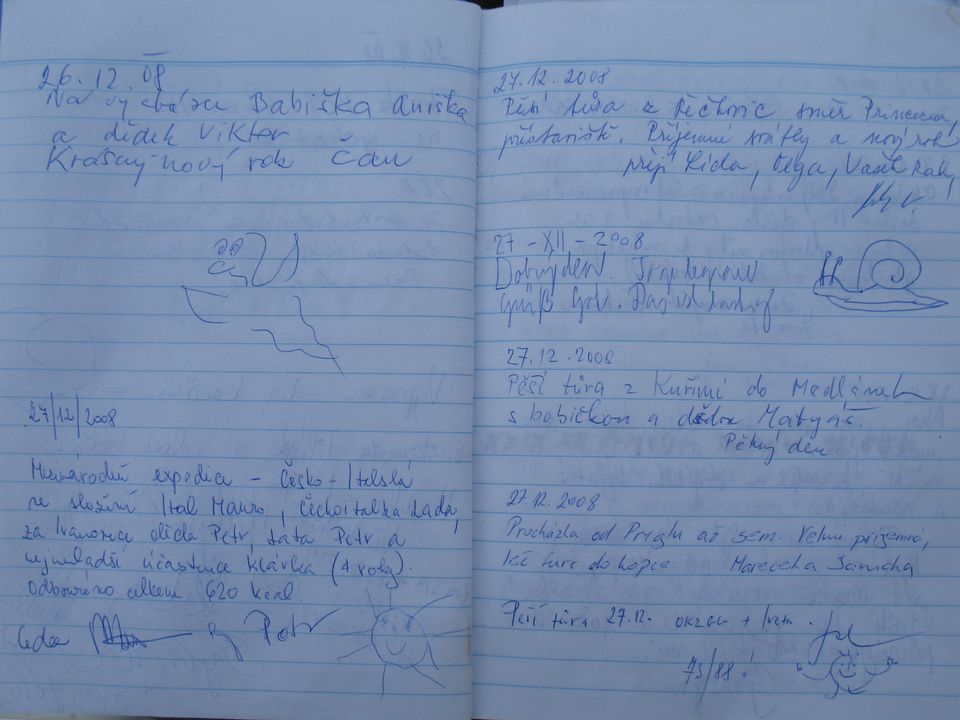 26.12.08
Na vycházce Babiška Aniška
a dědek Viktor
Krásný nový rok Čau
27/12/2008
Mezinárodní expedice - Česko-Italská
ve složení Ital Mauro, Čechoitalka Lada,
za Ivanovice děda Petr, táta Petr a
nejmladší účastnice Klárka (4 roky).
Odbouráno celkem 620 kcal.
Leda Petr
27.12.2008
Pěší túra z Řečkovic směr Princezna,
přístaviště. Příjemné svátky a nový rok
přejí Lída, Olga, Vašek
27-XII-2008
Dobrý den.
Grüß Gott.
27.12.2008
Pěší túra z Kuřimi do Medlánek
s babičkou a dědou Matyáš.
Pěkný den
27.12.2008
Procházka od Prýglu až sem. Velmi příjemná,
leč furt do kopce.
Pěší túra 27.12. OK2GG + Iveta.
73/88!